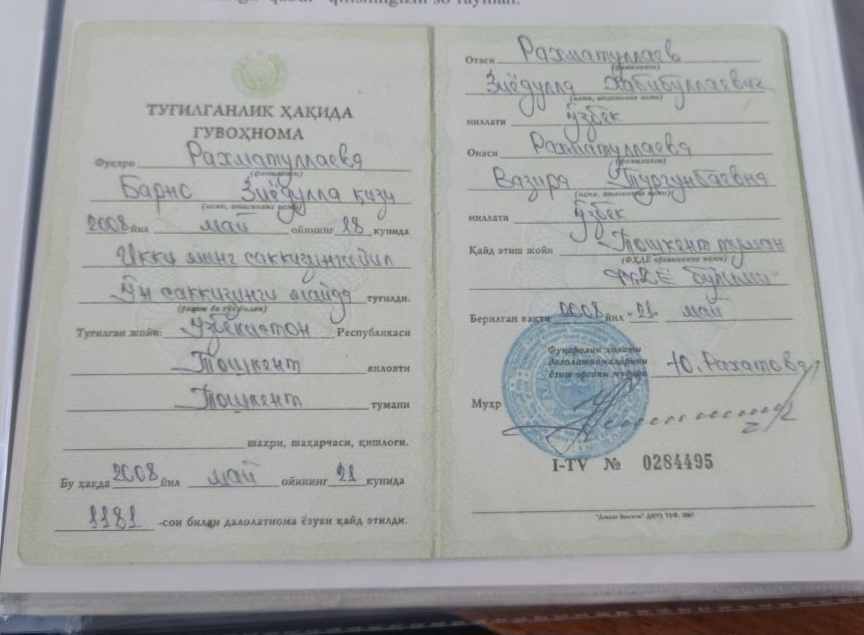 qilishingizni so'rayman.
ТУҒИЛГАНЛИК ҲАҚИДА
ГУВОҲНОМА
Фуқаро Рахматуллаева
(фамилияси)
Барно Зиёдулла қизи
(исми, отасининг исми)
2008 йил май ойининг 18 кунида
Икки минг саккизинчи йил
Ўн саккизинчи майда туғилди.
(рақам ва сўз билан)
Туғилган жойи: Ўзбекистон Республикаси
Тошкент вилояти
Тошкент тумани
шаҳри, шаҳарчаси, қишлоғи.
Бу ҳақда 2008 йил май ойининг 21 кунида
1181 -сон билан далолатнома ёзуви қайд этилди.
Отаси Рахматуллаев
(фамилияси)
Зиёдулла Хабибуллаевич
(исми, отасининг исми)
миллати ўзбек
Онаси Рахматуллаева
(фамилияси)
Вазира Тургунбаевна
(исми, отасининг исми)
миллати ўзбек
Қайд этиш жойи Тошкент туман
(ФҲДЁ органининг номи)
ФХДЁ бўлими
Берилган вақти 2008 йил "21" май
Фуқаролик ҳолати
далолатномаларини
ёзиш органи мудири Ю. Рахатова
Муҳр
I-TV № 0284495